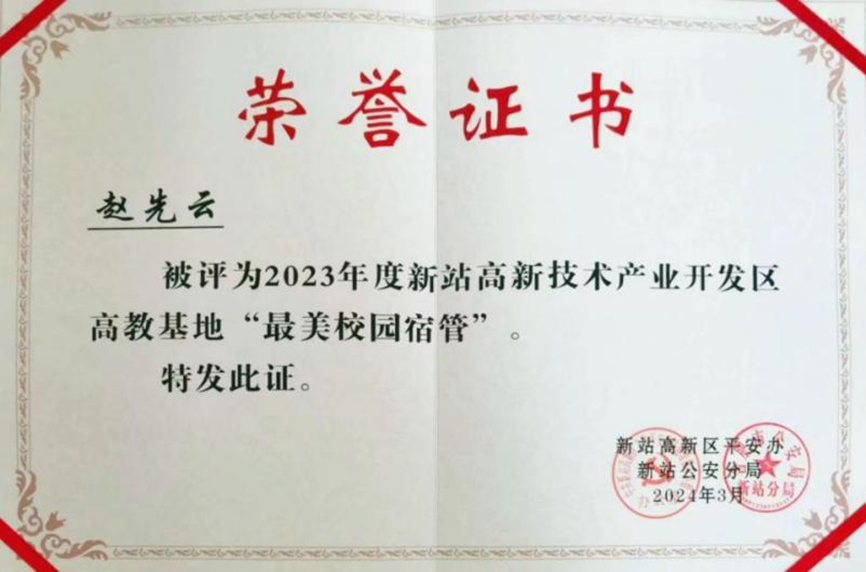 荣誉证书
赵先云
被评为2023年度新站高新技术产业开发区
高教基地“最美校园宿管”。
特发此证。
新站高新区平安办
新站公安分局
2024年3月
新站分局